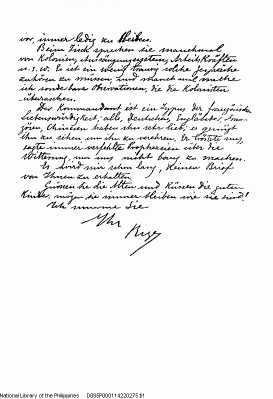 vor, immer ledig zu bleiben.
Beim Tisch sprechen sie manchmal
von Kolonien, Arbeitskräften
u.s.w. Es ist ein wenig solche Gespräche
zuhören zu müssen, und manchmal mache
ich sonderbare Observationen, die die Kolonisten
überraschen.
Der Kommandant ist ein Typus der französische
Liebenswürdigkeit, alle, Deutschen, Engländer,
Chinesen haben ihn sehr lieb, es genügt
ihn zu sehen um ihn zu verehren. Er tröstete uns,
sagte immer verfehlte Prophezeien über die
Witterung, um uns nicht bang zu machen.
Es wird mir sehr lang, keinen Brief
von Ihnen zu erhalten.
Grüssen Sie die Alten und Küssen die guten
Kinder, mögen sie immer bleiben wie sie sind!
Ich umarme Sie
Ihr
National Library of the Philippines